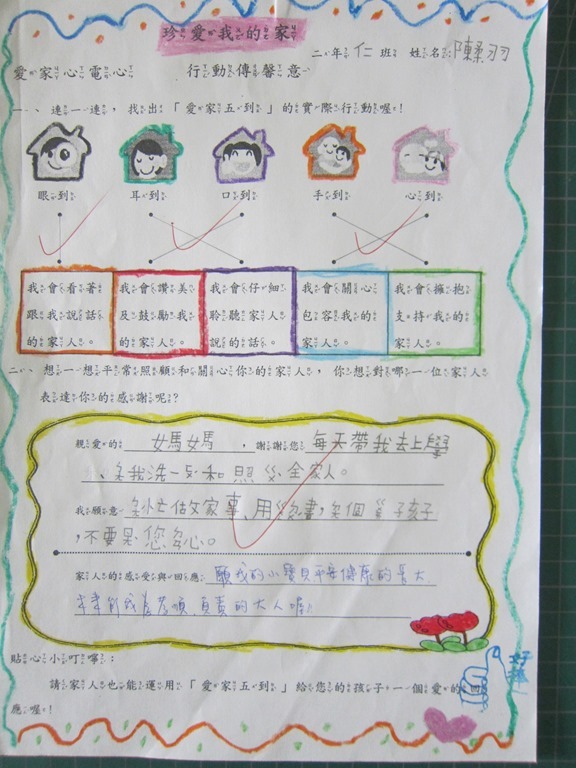 珍愛我的家
二年仁班 姓名陳柔羽
愛家心電心 行動傳馨意
一、連一連，找出「愛家五到」的實際行動喔！
眼到 耳到 口到 手到 心到
我會看著跟我說話的家人。
我會讚美及鼓勵我的家人。
我會仔細聆聽家人說的話。
我會關心包容我的家人。
我會擁抱支持我的家人。
二、想一想平常照顧和關心你的家人，你想對哪一位家人
表達你的感謝呢？
親愛的 媽媽 ，謝謝您 每天帶我去上學
、 我洗 和照 全家人。
我願意 忙做家事、用 書， 個 子孩子
，不要 您 心。
家人的感受與回應： 願我的小寶貝平安健康的長大
孝順 負責的大人喔！
貼心小叮嚀：
請家人也能運用「愛家五到」給您的孩子一個愛的回
應喔！
好棒